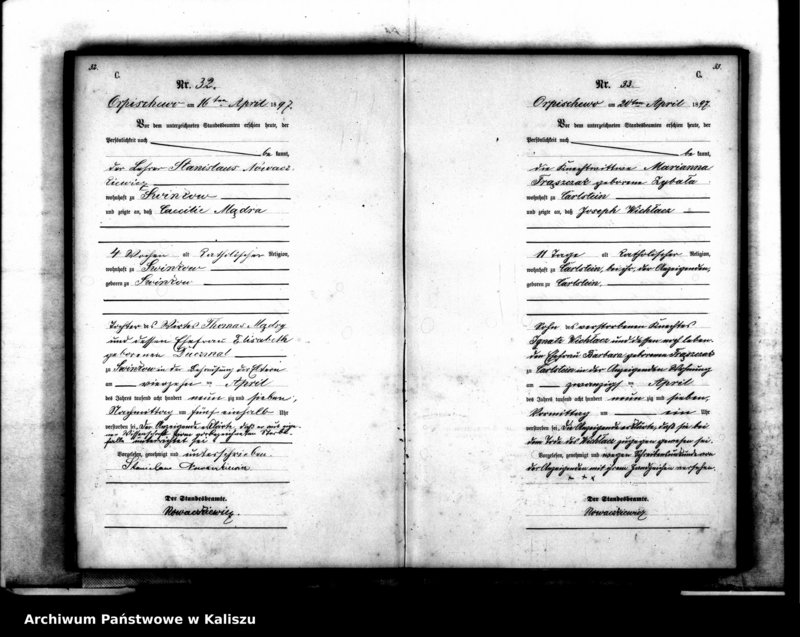 32.
C.
Nr. 32.
Orpischewo am 16ten April 1897.
Vor dem unterzeichneten Standesbeamten erschien heute, der
Persönlichkeit nach
be kannt,
der Lehrer Stanislaus Nowacz
kiewicz
wohnhaft zu Swinkow
und zeigte an, daß Caecilie Mądra
4 Wochen alt katholischer Religion,
wohnhaft zu Swinkow
geboren zu Swinkow
Tochter des Wirtes Thomas Mądry
und dessen Ehefrau Elisabeth
geborenen
zu Swinkow in der Behausung der Eltern
am vierzehn ten April
des Jahres tausend acht hundert neun zig und sieben,
Nachmittag um fünf einhalb Uhr
verstorben sei. Der Anzeigende erklärte, daß er aus eige
ner Wissenschaft von
unterrichtet sei
Vorgelesen, genehmigt und unterschrieben.
Stanislaus
Der Standesbeamte.
Nowaczkiewicz.
33.
C.
Nr. 33.
Orpischewo am 20ten April 1897.
Vor dem unterzeichneten Standesbeamten erschien heute, der
Persönlichkeit nach
be kannt,
die Knechtwittwe Marianna
Frąszczak geborene Zybała
wohnhaft zu Carlstein
und zeigte an, daß Joseph Wichłacz
11 Tage alt katholischer Religion,
wohnhaft zu Carlstein, bei ihr, der Anzeigenden,
geboren zu Carlstein,
Sohn des verstorbenen Knechtes
Ignatz Wichłacz und dessen noch leben
den Ehefrau Barbara geborene Frąszczak
zu Carlstein in der Anzeigenden Wohnung
am zwanzigst ten April
des Jahres tausend acht hundert neun zig und sieben,
Vormittag um ein Uhr
verstorben sei. Die Anzeigende erklärte, daß sie bei
dem Tode des Wichłacz zugegen gewesen sei.
Vorgelesen, genehmigt und wegen Schreibensunkunde von
der Anzeigenden mit ihrem Handzeichen versehen.
+ + +
Der Standesbeamte.
Nowaczkiewicz
Archiwum Państwowe w Kaliszu